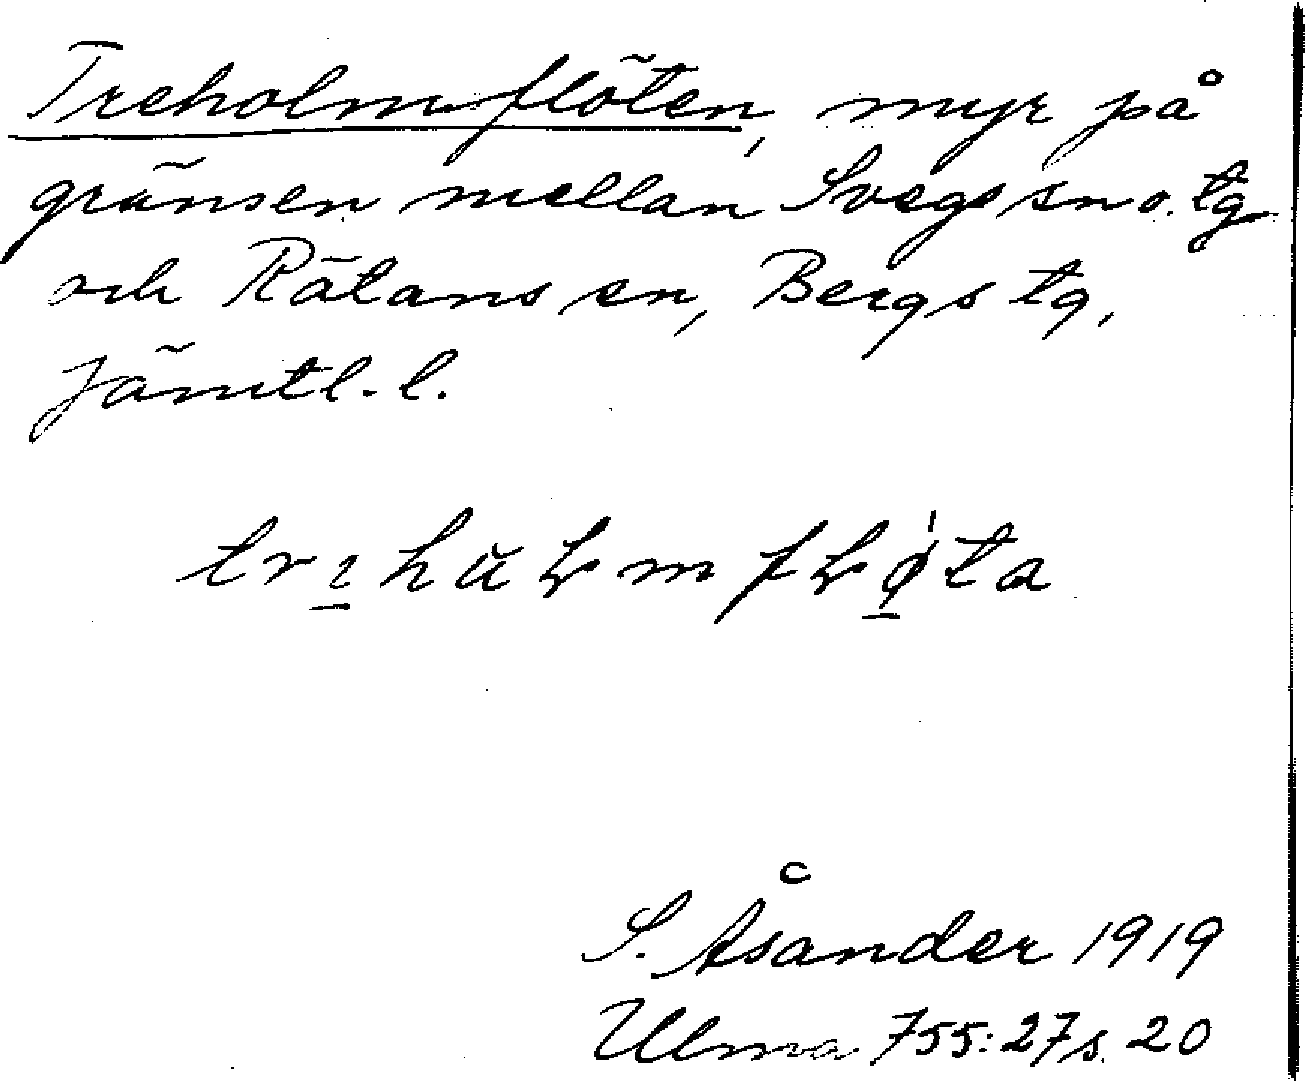 Treholmflöten, myr på
gränsen mellan Svegs sn o. tg
och Rätans sn, Bergs tg,
Jämtl. l.
S. Åsander 1919
Ulma 755:27 s. 20